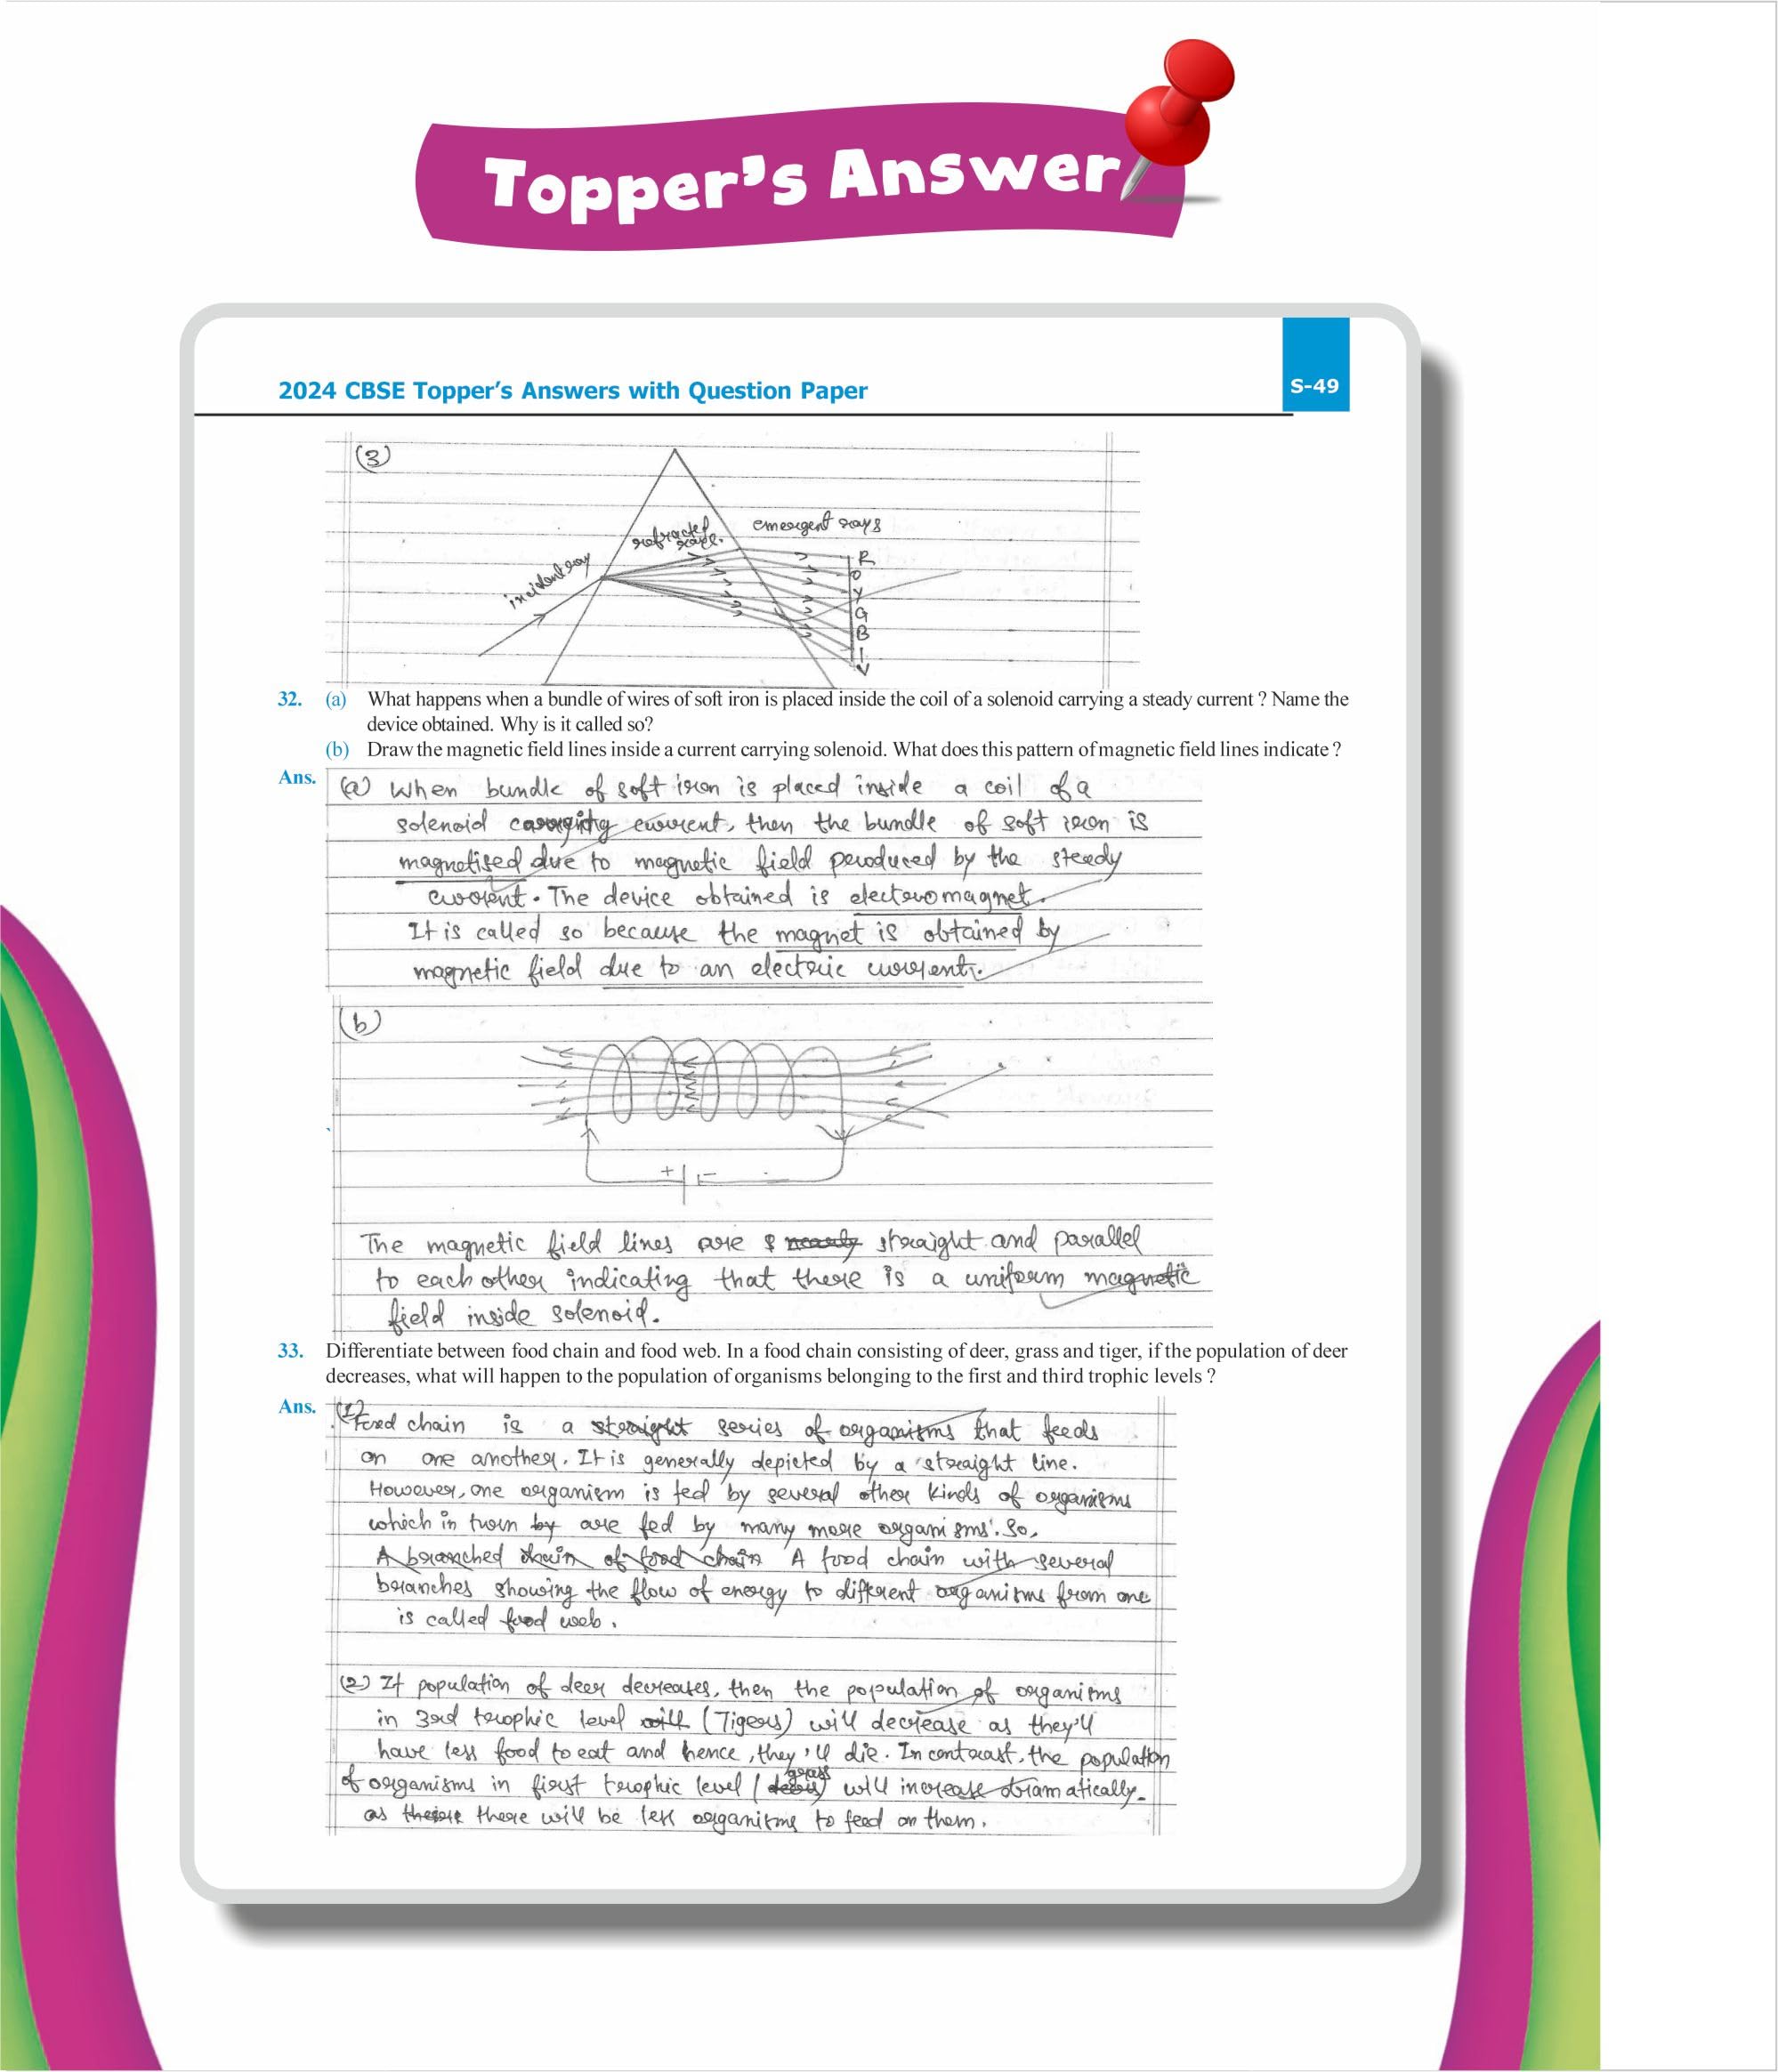 Topper's Answer
2024 CBSE Topper's Answers with Question Paper
S-49
(3)
emergent rays
refracted
rays.
incident ray
R
O
Y
G
B
I
V
32. (a) What happens when a bundle of wires of soft iron is placed inside the coil of a solenoid carrying a steady current ? Name the
device obtained. Why is it called so?
(b) Draw the magnetic field lines inside a current carrying solenoid. What does this pattern of magnetic field lines indicate ?
Ans. (a) When bundle of soft iron is placed inside a coil of a
solenoid carrying current, then the bundle of soft iron is
magnetised due to magnetic field produced by the steady
current. The device obtained is electromagnet.
It is called so because the magnet is obtained by
magnetic field due to an electric current.
(b)
+ -
The magnetic field lines are nearly straight and parallel
to each other indicating that there is a uniform magnetic
field inside solenoid.
33. Differentiate between food chain and food web. In a food chain consisting of deer, grass and tiger, if the population of deer
decreases, what will happen to the population of organisms belonging to the first and third trophic levels ?
Ans. (1)
Food chain is a straight series of organisms that feeds
on one another. It is generally depicted by a straight line.
However, one organism is fed by several other kinds of organisms
which in turn by are fed by many more organisms. So,
A branched chain of food chain A food chain with several
branches showing the flow of energy to different organisms from one
is called food web.
(2) If population of deer decreases, then the population of organisms
in 3rd trophic level will (Tigers) will decrease as they'll
have less food to eat and hence, they'll die. In contrast, the population
grass
of organisms in first trophic level (deers) will increase dramatically
as there will be less organisms to feed on them.